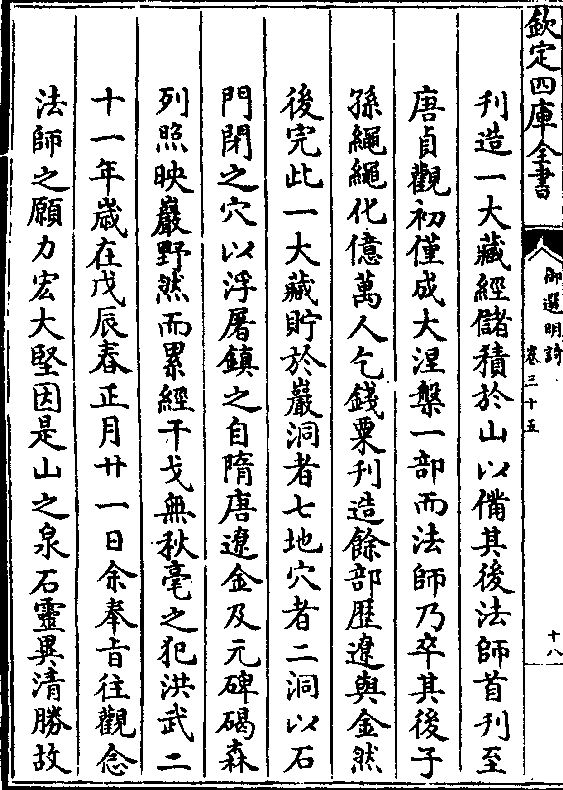 欽定四庫全書
御選明詩
卷三十五
十八
刋造一大藏經儲積於山以備其後法師首刋至
唐貞觀初僅成大涅槃一部而法師乃卒其後子
孫繩繩化億萬人乞錢粟刋造餘部歴遼與金然
後完此一大藏貯於巖洞者七地穴者二洞以石
門閉之穴以浮屠鎮之自隋唐遼金及元碑碣森
列照映巖野然而累經干戈無秋毫之犯洪武二
十一年嵗在戊辰春正月廿一日余奉旨往觀念
法師之願力宏大堅因是山之泉石靈異清勝故